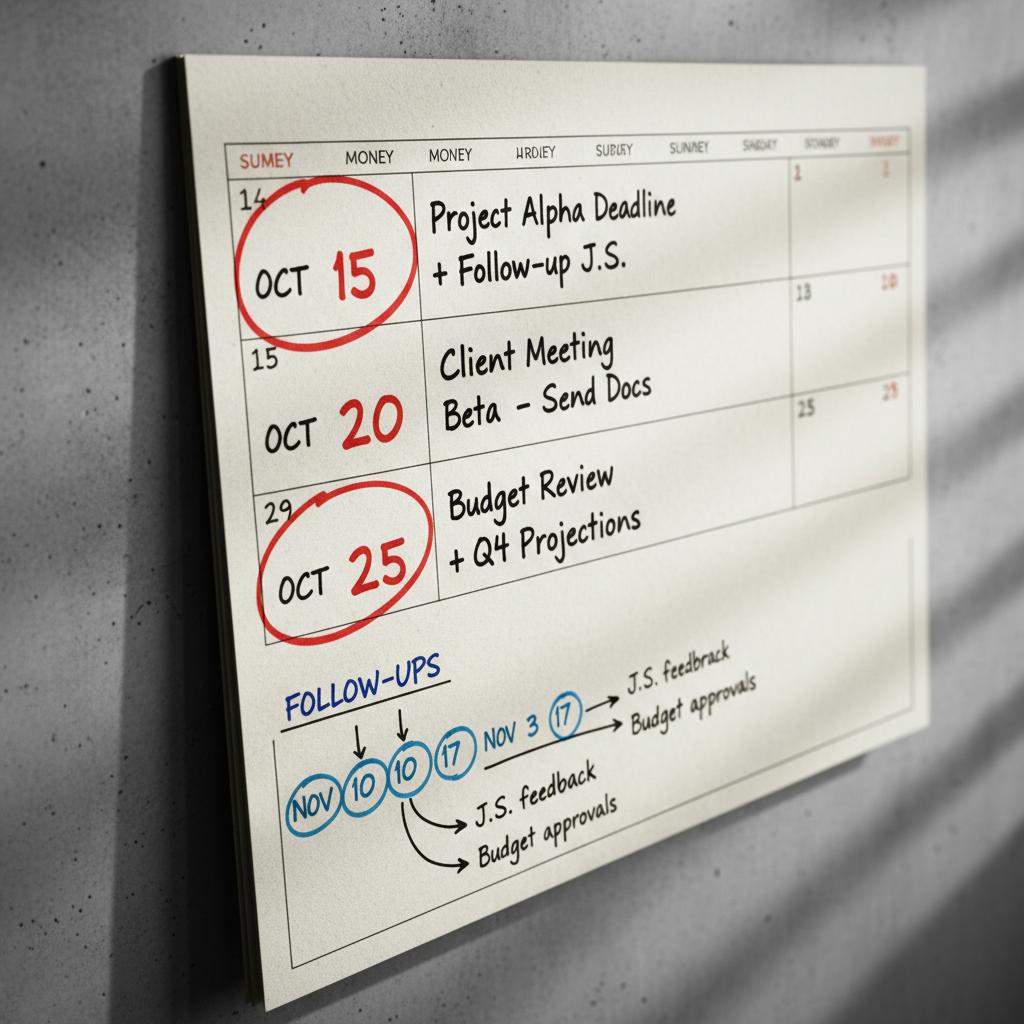 SUMEY MONEY MONEY
14 2 1
OCT 15
Project Alpha Deadline
+ Follow-up J.S.
15 13
OCT 20
Client Meeting
Beta - Send Docs
29 25
OCT 25
Budget Review
+ Q4 Projections
FOLLOW-UPS
NOV 10 10 17 NOV 3 17
J.S. feedbrack
Budget approvals
J.S. feedback
Budget approvals